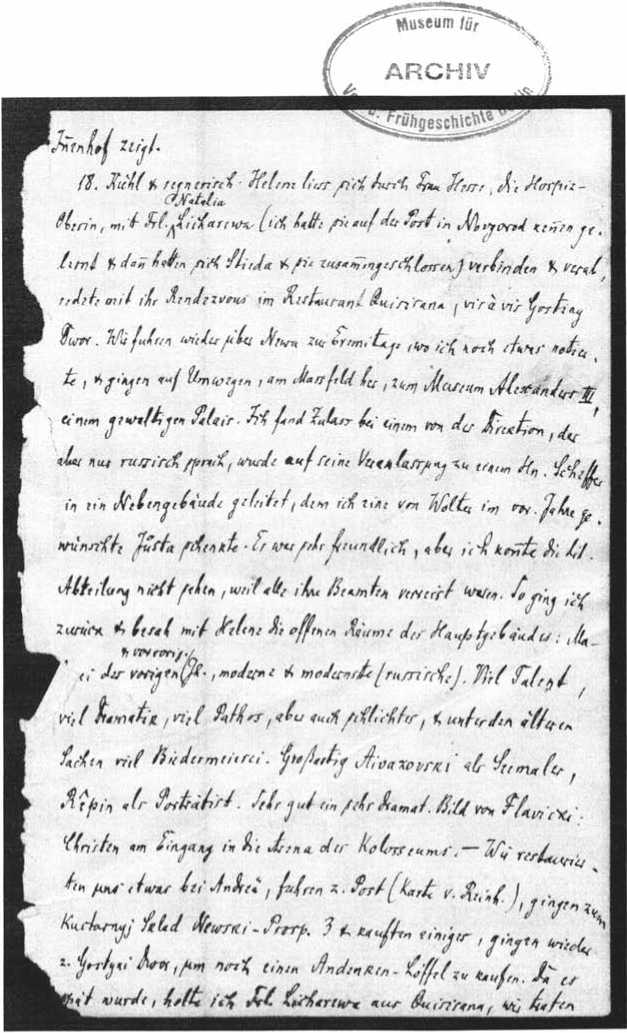 Museum für
ARCHIV
Vor u. Frühgeschichte Berlin
Iñenhof zeigt.
18. Kühl & regnerisch. Helene liess sich durch Frau Hesse, die Hospiz-
Natalia
Oberin, mit Frl. Licharewa (ich hatte sie auf der Post in Novgorod keñen ge-
lernt & dañ hatten sich Stieda & sie zusam̄engeschlossen) verbinden & verab-
redete mit ihr Rendezvous im Restaurant Quisisana, vis à vis Gostinny
Dwor. Wir fuhren wieder über Newa zur Eremitage, wo ich noch etwas notier-
te, & gingen auf Umwegen, am Marsfeld her, zum Museum Alexanders III,
einem gewaltigen Palais. Ich fand Zulass bei einem von der Direktion, der
aber nur russisch sprach, wurde auf seine Veranlassung zu einem Hn. Scheffer
in ein Nebengebäude geleitet, dem ich eine von Wolter im vor. Jahre ge-
wünschte Jůsta schenkte. Er war sehr freundlich, aber ich konnte die Lit.
Abteilung nicht sehen, weil alle ihre Beamten verreist waren. So ging ich
zurück & besah mit Helene die offenen Räume des Hauptgebäudes: Ma-
u vorvorig.
ei des vorigen Jh., moderne & modernste (russische). Viel Talent,
viel Dramatik, viel Pathos, aber auch schlichtes, & unter den älteren
Sachen viel Biedermeierei. Großartig Aivazovski als Seemaler,
Rěpin als Porträtist. Sehr gut ein sehr dramat. Bild von Flavicki:
Christen am Eingang in die Arena des Kolosseums. – Wir restaurier-
ten uns etwas bei Andreä, fuhren z. Post (Karte v. Reinh.), gingen zum
Kustarnyj Sklad Newski-Prosp. 3 & kauften einiges, gingen wieder
z. Gostyni Dvor, um noch einen Andenken-Löffel zu kaufen. Da es
spät wurde, holte ich Frl. Licharewa aus Quisisana, wir traten